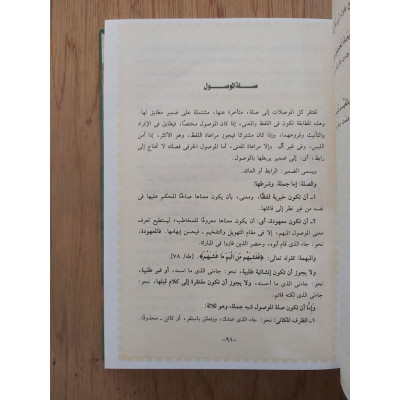 صلة الموصول
تفتقر كل الموصلات إلى صلة، متأخرة عنها، مشتملة على ضمير مطابق لها.
وهذه المطابقة تكون في اللفظ والمعنى، إذا كان الموصول مختصًا، فيطابق في الإفراد
والتأنيث وفروعهما، وإذا كان مشتركا فيجوز مراعاة اللفظ، وهو الأكثر، إذا أمن
اللبس، وفي غير أل. وإلا مراعاة المعنى، أما الموصول الحرفي فصلته لا تحتاج إلى
رابط، أي: إلى ضمير يربطها بالموصول.
ويسمى الضمير: الرابط أو العائد.
والصلة: إما جملة، وشرطها:
١ـ أن تكون خبرية لفظًا، ومعنى، بأن يكون معناها صادقًا للحكم على
نفسه من غير نظر إلى قائلها.
٢ـ أن تكون معهودة، أي: أن يكون معناها معروفًا للمخاطب؛ ليستطيع تعرف
معنى الموصول المبهم، إلا في مقام التهويل والتفخيم، فيحسن إبهامها. فالمعهودة،
نحو: جاء الذي قام أبوه، وحضر الذين فازوا في المباراة.
والمبهمة: كقوله تعالى: ﴿فَغَشِيَهُم مِّنَ الْيَمِّ مَا غَشِيَهُمْ﴾. [طه/ ٧٨]
ولا يجوز أن تكون إنشائية طلبية، نحو: جاءني الذي ما اسمه، أو غير طلبية،
نحو: جاءني الذي ما أحسنه، ولا يجوز أن تكون مفتقرة إلى كلام قبلها،
جاءني الذي لكنه قائم.
وإما أن تكون صلة الموصول شبه جملة، وهو ثلاثة:
١ـ الظرف المكاني: نحو: جاء الذي عندك، ويتعلق باستقر، أو كائن ـ محذوفًا.
-٩١-